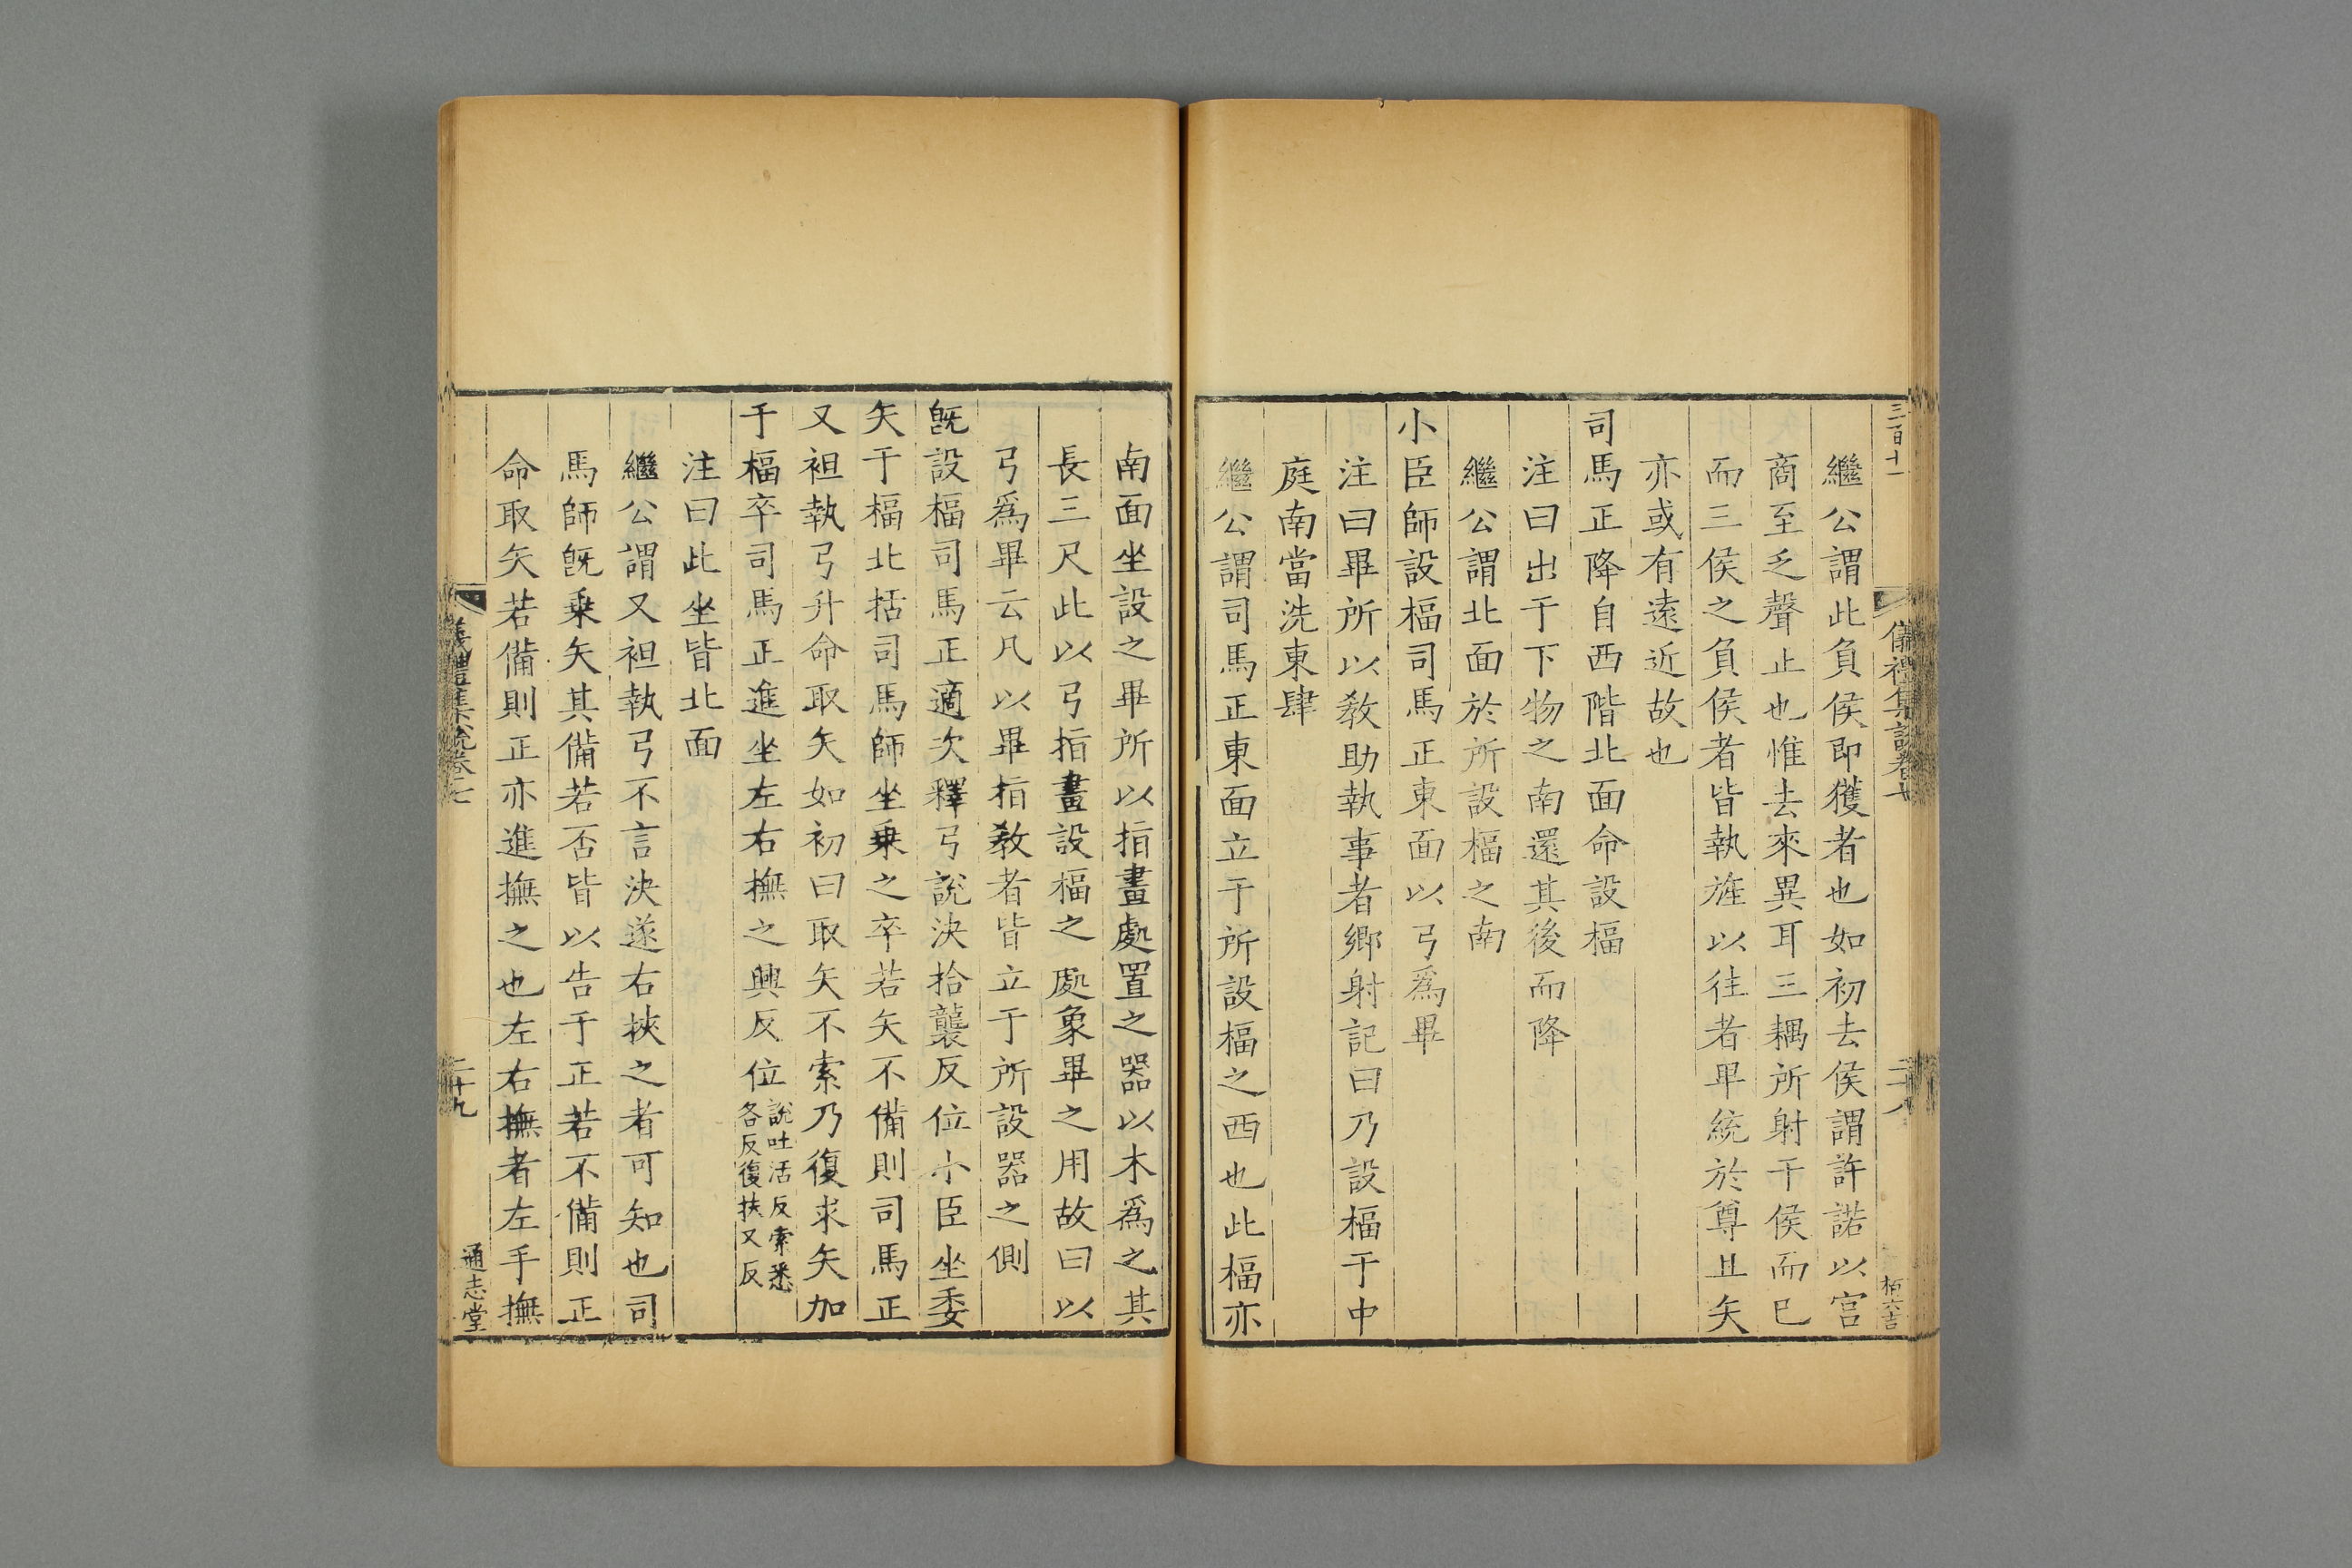 三百十一
儀禮集說卷七
二十八
栢六吉
繼公謂此負侯即獲者也如初去侯謂許諾以宫
商至乏聲止也惟去來異耳三耦所射干侯而巳
而三侯之負侯者皆執旌以往者畢統於尊且矢
亦或有遠近故也
司馬正降自西階北面命設楅
注曰出于下物之南還其後而降
繼公謂北面於所設楅之南
小臣師設楅司馬正東面以弓爲畢
注曰畢所以敎助執事者鄉射記曰乃設楅于中
庭南當洗東肆
繼公謂司馬正東面立于所設楅之西也此楅亦
南面坐設之畢所以指畫處置之器以木爲之其
長三尺此以弓指畫設楅之處象畢之用故曰以
弓爲畢云凡以畢指敎者皆立于所設器之側
旣設楅司馬正適次釋弓說決拾襲反位小臣坐委
矢于楅北括司馬師坐乗之卒若矢不備則司馬正
又袒執弓升命取矢如初曰取矢不索乃復求矢加
于楅卒司馬正進坐左右撫之興反位說吐活反索悉
各反復扶又反
注曰此坐皆北面
繼公謂又袒執弓不言決遂右挾之者可知也司
馬師旣乗矢其備若否皆以告于正若不備則正
命取矢若備則正亦進撫之也左右撫者左手撫
儀禮集說卷七
二十九
通志堂